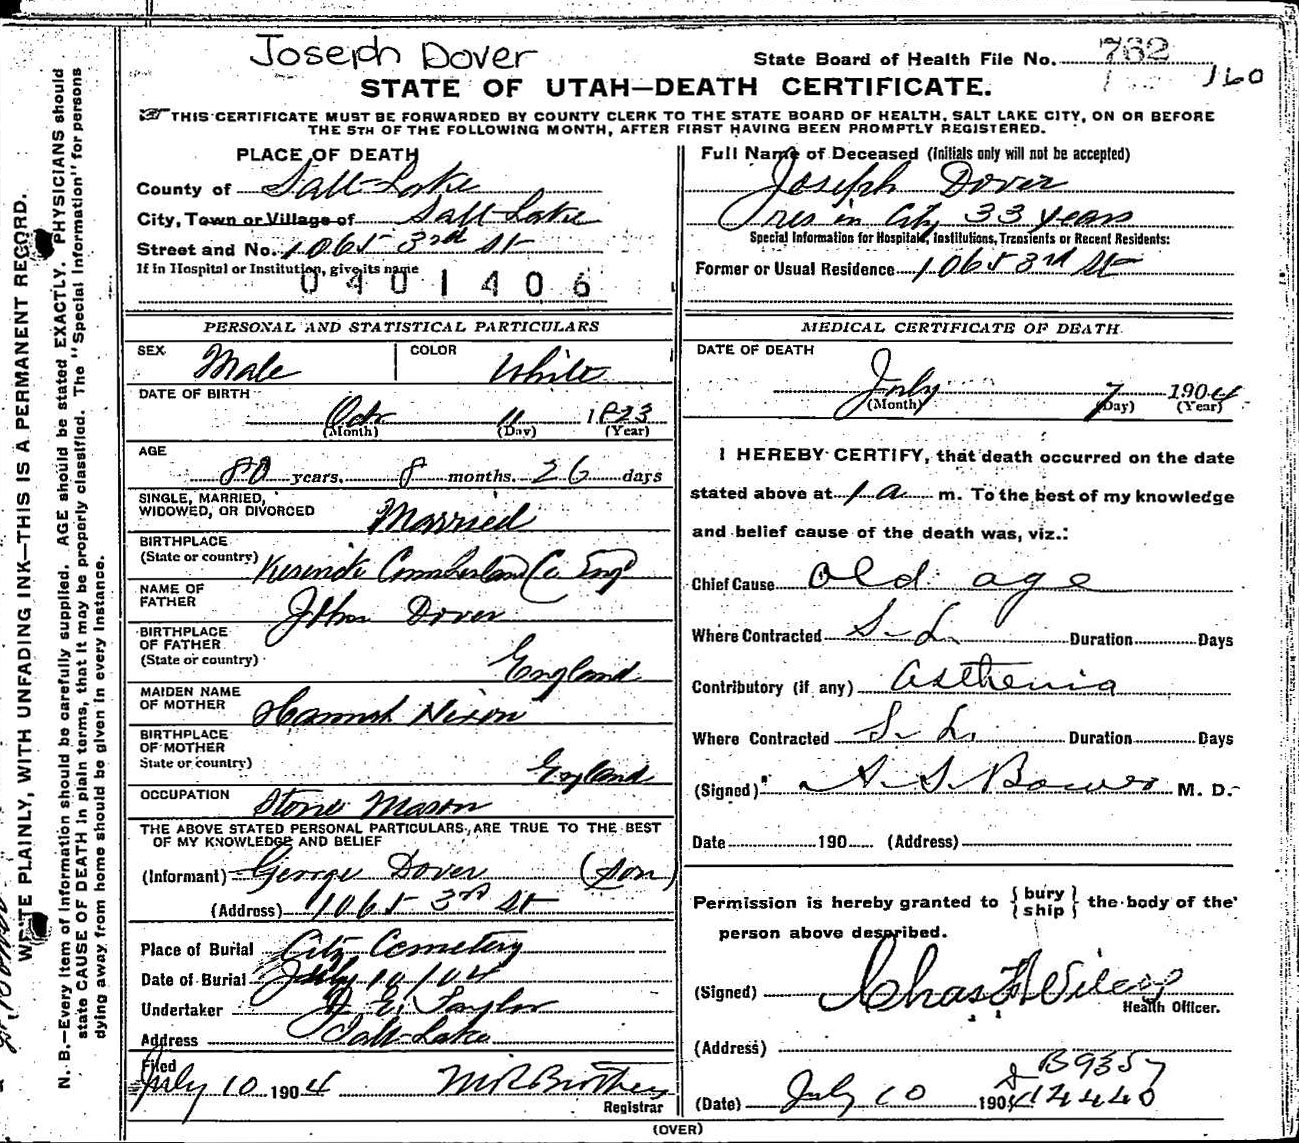 Joseph Dover
State Board of Health File No. 762
160
STATE OF UTAH—DEATH CERTIFICATE.
THIS CERTIFICATE MUST BE FORWARDED BY COUNTY CLERK TO THE STATE BOARD OF HEALTH, SALT LAKE CITY, ON OR BEFORE
THE 5TH OF THE FOLLOWING MONTH, AFTER FIRST HAVING BEEN PROMPTLY REGISTERED.
WRITE PLAINLY, WITH UNFADING INK—THIS IS A PERMANENT RECORD.
N. B.—Every item of Information should be carefully supplied. AGE should be stated EXACTLY. PHYSICIANS should
state CAUSE OF DEATH in plain terms, that it may be properly classified. The "Special Information" for persons
dying away from home should be given in every instance.
PLACE OF DEATH
County of Salt Lake
City, Town or Village of Salt Lake
Street and No. 1065 3rd St
If in Hospital or Institution, give its name
0401406
PERSONAL AND STATISTICAL PARTICULARS
SEX Male COLOR White
DATE OF BIRTH
Oct 11 1823
(Month) (Day) (Year)
AGE
80 years, 8 months, 26 days
SINGLE, MARRIED,
WIDOWED, OR DIVORCED Married
BIRTHPLACE
(State or country) Cumberland Co Eng
NAME OF
FATHER John Dover
BIRTHPLACE
OF FATHER
(State or country) England
MAIDEN NAME
OF MOTHER Hannah Nixon
BIRTHPLACE
OF MOTHER
State or country) England
OCCUPATION Stone Mason
THE ABOVE STATED PERSONAL PARTICULARS, ARE TRUE TO THE BEST
OF MY KNOWLEDGE AND BELIEF
(Informant) George Dover (Son)
(Address) 1065 3rd St
Place of Burial City Cemetery
Date of Burial July 10/04
Undertaker J. E. Taylor
Address Salt Lake
Filed
July 10 1904
Registrar
Full Name of Deceased (Initials only will not be accepted)
Joseph Dover
res in City 33 years
Special Information for Hospitals, Institutions, Transients or Recent Residents:
Former or Usual Residence 1065 3rd St
MEDICAL CERTIFICATE OF DEATH.
DATE OF DEATH
July 7 1904
(Month) (Day) (Year)
I HEREBY CERTIFY, that death occurred on the date
stated above at 1 a m. To the best of my knowledge
and belief cause of the death was, viz.:
Chief Cause Old age
Where Contracted S. L. Duration Days
Contributory (if any) Asthenia
Where Contracted S. L. Duration Days
(Signed) M. D.
Date 190 (Address)
Permission is hereby granted to {bury
ship} the body of the
person above described.
(Signed) Chas
Health Officer.
(Address)
B9357
(Date) July 10 1904 D 14440
(OVER)